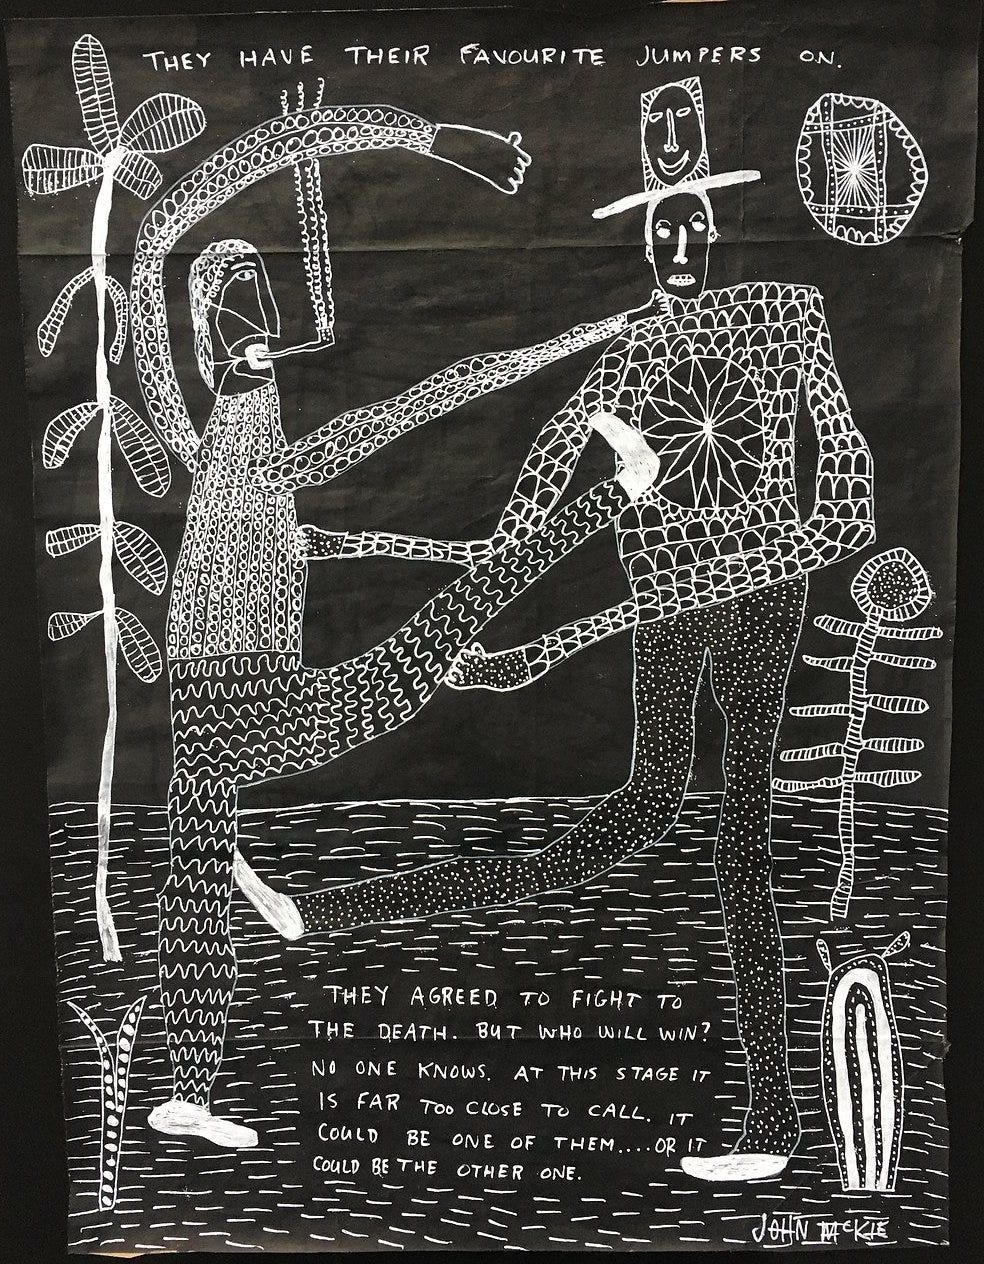 THEY HAVE THEIR FAVOURITE JUMPERS ON.
THEY AGREED TO FIGHT TO
THE DEATH. BUT WHO WILL WIN?
NO ONE KNOWS. AT THIS STAGE IT
IS FAR TOO CLOSE TO CALL. IT
COULD BE ONE OF THEM....OR IT
COULD BE THE OTHER ONE.
JOHN McKIE